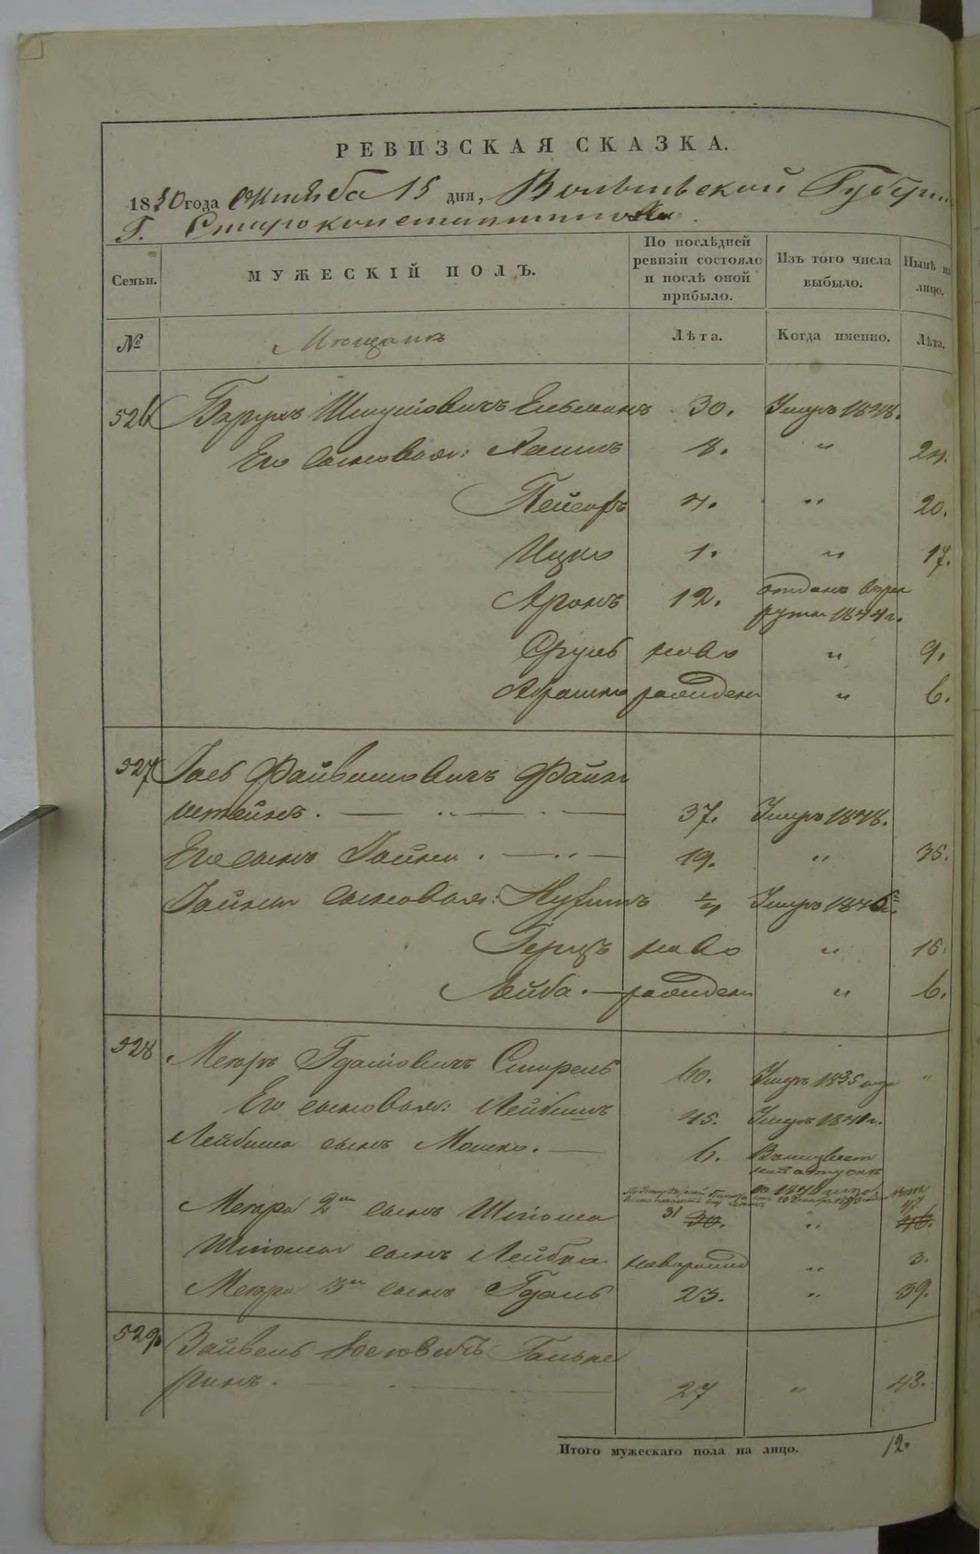 РЕВИЗСКАЯ СКАЗКА.
1850 года Октября 15 дня, Волынской Губерн
Г. Староконстантинова
Семьи. МУЖЕСКІЙ ПОЛЪ. По послѣдней ревизіи состояло и послѣ оной прибыло. Изъ того числа выбыло. Нынѣ на лицо.
№ Мещанъ Лѣта. Когда именно. Лѣта.
526 Барухъ Шмулiовичъ 30. Умеръ 1848.
Его сыновья: 8. " 24.
Пейсахъ 4. " 20.
Ицко 1. " 17.
Аронъ 12. отданъ в рек
руты 1844 г.
Сруль ново " 9.
Абрамко рожденъ " 6.
527 Файвишовичъ Файн
штейнъ. 37. Умеръ 1848.
Его сынъ 19. " 35.
сыновья: 1/4 Умеръ 1846
Герцъ ново " 15.
Лейба. рожденъ " 6.
528 Мееръ Гдалiовичъ 60. Умеръ 1835 года "
Его сыновья: Лейбишъ 45. Умеръ 1841 г.
Лейбиша сынъ Мошко. 6. Въ неизвест
Меера 2й сынъ Шлiома 31 30. " 47 46.
Шлiомы сынъ Лейбка новорожд " 3.
Меера 3й сынъ Гдаль 23. " 39.
529 Зайвель Iосiовичъ Гальпе
ринъ. 27 " 43.
Итого мужескаго пола на лицо. 12.